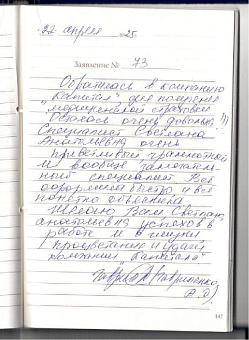 22 апреля 25
Заявление № 73
Обратилась в компанию
"Капитал" для получения
медицинской страховки
Осталась очень довольна !))
Специалист Светлана
Анатольевна очень
приветливый грамотной
и вообще замечатель-
ный специалист Всё
оформила быстро и всё
понятно объяснила
Желаю Вам, Светлана
Анатольевна успехов в
работе и в жизни
процветания и удачи
компании
147